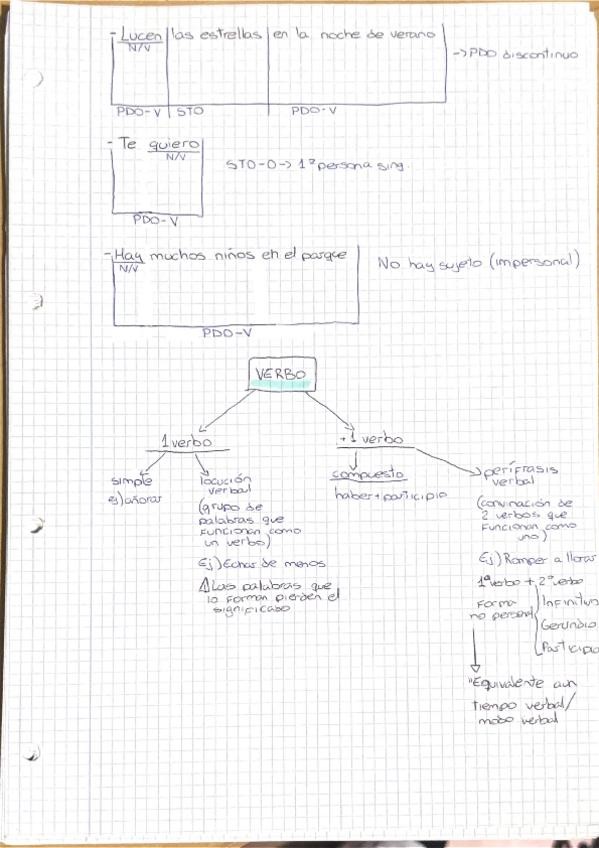 - Lucen las estrellas en la noche de verano
N/V
-> PDO discontinuo
PDO-V STO PDO-V
- Te quiero
N/V
STO-O-> 1ª persona sing.
PDO-V
- Hay muchos niños en el parque
N/V
No hay sujeto (impersonal)
PDO-V
VERBO
1 verbo
+1 verbo
simple
ej) añorar
locución
verbal
(grupo de
palabras que
funcionan como
un verbo)
Ej) Echar de menos
⚠Las palabras que
lo forman pierden el
significado
compuesto
haber+participio
perífrasis
verbal
(convinación de
2 verbos que
funcionan como
uno)
Ej) Romper a llorar
1º verbo + 2º verbo
Forma
no personal
Infinitivo
Gerundio
Participio
"Equivalente a un
tiempo verbal/
modo verbal